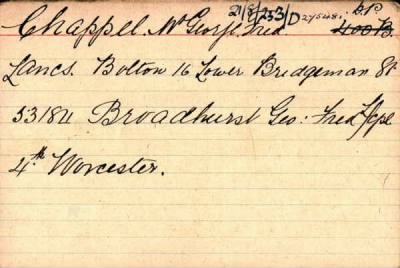 Chappel. Mr George Fred 21/8/253/D 27548. b.p. 400 B
Lancs. Bolton 16 Lower Bridgeman St
53184 Broadhurst Geo: Fred L/cpl
4th Worcester.